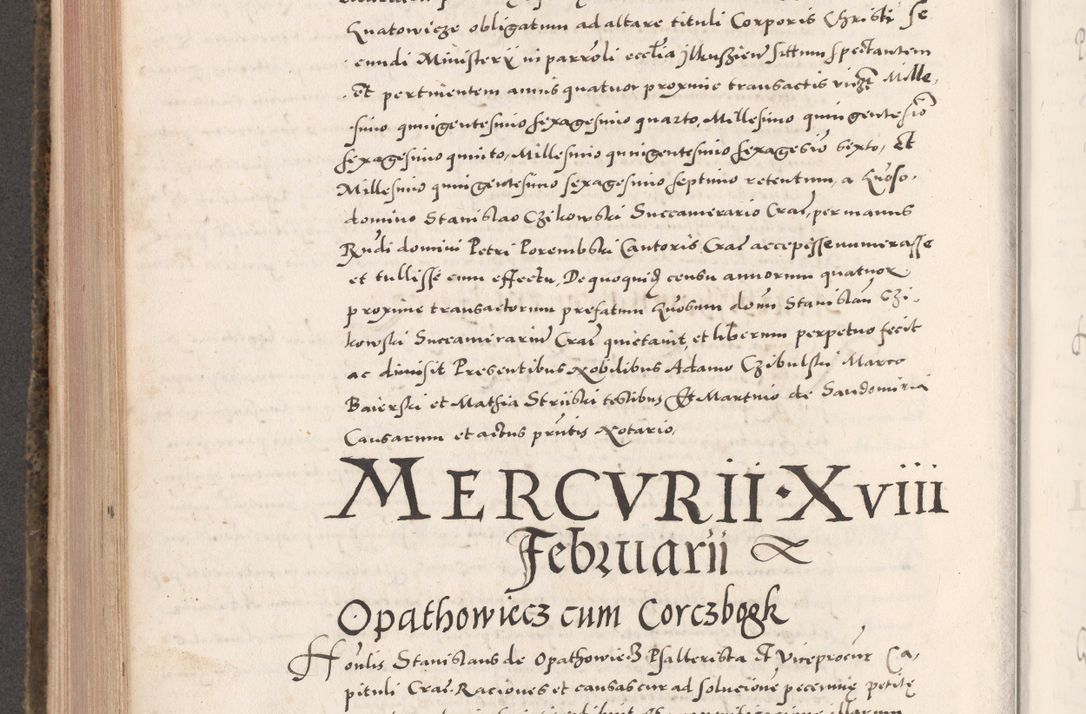 Kwatowicze obligatum ad altare tituli Corporis Christi se
cundi Ministerij in parroli eccl̃ia jlkuszien̄ sittum spectantem
et pertinentem annis quatuor proxime transactis vidz Mille
simo quingentesimo sexagesimo quarto, Millesimo quingentesio
sexagesimo quinto, Millesimo quingentesimo sexagesio sexto, Et
Millesimo quingentesimo sexagesimo septimo retentum, a
domino Stanislao Czikowski Succamerario Crac̄, per manus
Rṇdi domini Petri Porembski Cantoris Crac̄ accepisse numerasse
et tullisse cum effectu, De quoquidz censu annorum quatuor
proxime transactorum prefatum domī Stanislaū Czi
kowski Succamerariū Crac̄ quietavit, et liberum perpetuo fecit
ac dimisit Presentibus Nobilibus Adamo Czibulski Marco
Baierski et Mathia Striiski testibus Et Martino de Sandomiria
Causarum et actus prn̄tis Notario,
MERCVRII · Xviii
Februarii
Opathowiecz cum Corczbogk
Honlis Stanislaus de Opathowiecz Psalterista et Viceprocur̄ Ca,
pituli Crac̄ Raciones et causas cur ad solucionē pecunię petitę